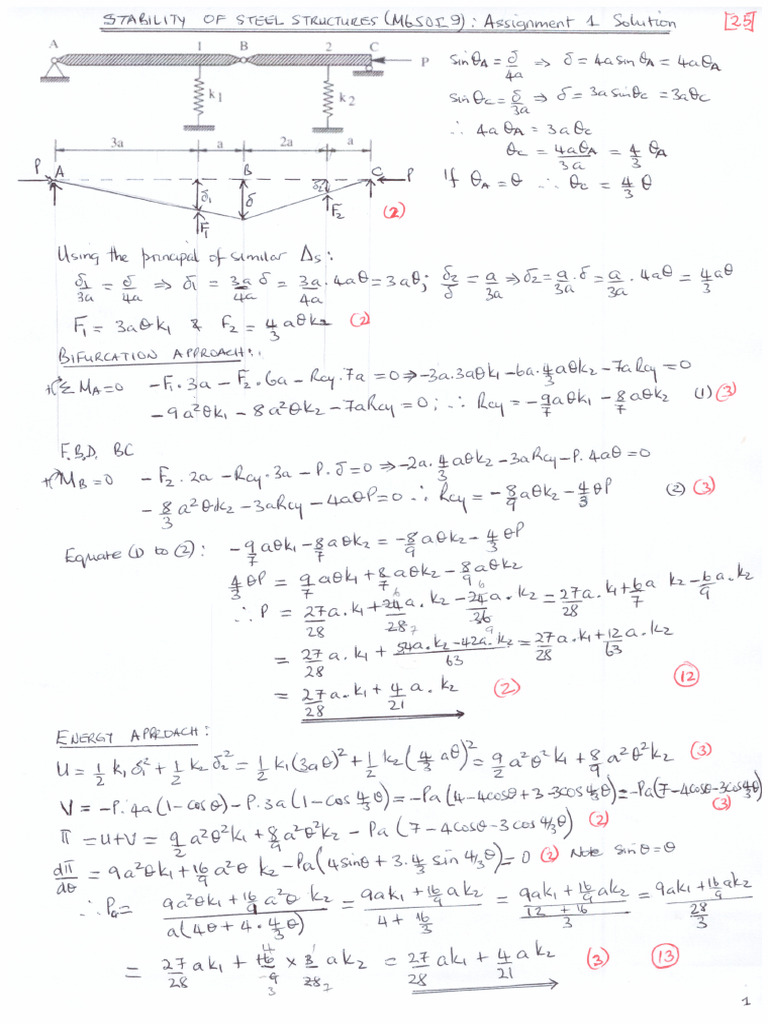 STABILITY OF STEEL STRUCTURES (M6S0I9): Assignment 1 Solution [25]
A 1 B 2 C
P
k1 k2
3a a 2a a
sinθA = δ/4a ⇒ δ = 4a sinθA = 4aθA
sinθc = δ/3a ⇒ δ = 3a sinθc = 3aθc
∴ 4aθA = 3aθc
θc = 4aθA/3a = 4/3 θA
If θA = θ ∴ θc = 4/3 θ
P A B C P
δ1 δ δ2
F1 F2 (2)
Using the principal of similar Δs:
δ1/3a = δ/4a ⇒ δ1 = 3a/4a δ = 3a/4a · 4aθ = 3aθ; δ2/δ = a/3a ⇒ δ2 = a/3a · δ = a/3a · 4aθ = 4/3 aθ
F1 = 3aθk1 & F2 = 4/3 aθk2 (2)
BIFURCATION APPROACH:
+ΣMA=0 -F1·3a - F2·6a - Rcy·7a = 0 ⇒ -3a·3aθk1 - 6a·4/3 aθk2 - 7aRcy = 0
-9a²θk1 - 8a²θk2 - 7aRcy = 0; ∴ Rcy = -9/7 aθk1 - 8/7 aθk2 (1) (3)
F.B.D. BC
+MB=0 -F2·2a - Rcy·3a - P·δ = 0 ⇒ -2a·4/3 aθk2 - 3aRcy - P·4aθ = 0
-8/3 a²θk2 - 3aRcy - 4aθP = 0 ∴ Rcy = -8/9 aθk2 - 4/3 θP (2) (3)
Equate (1) to (2): -9/7 aθk1 - 8/7 aθk2 = -8/9 aθk2 - 4/3 θP
4/3 θP = 9/7 aθk1 + 8/7 aθk2 - 8/9 aθk2
∴ P = 27/28 a·k1 + 24/28 a·k2 - 24/36 a·k2 = 27/28 a·k1 + 6/7 a k2 - 6/9 a·k2
= 27/28 a·k1 + 54a·k2 - 42a·k2/63 = 27/28 a·k1 + 12/63 a·k2
= 27/28 a·k1 + 4/21 a·k2 (2) (12)
ENERGY APPROACH:
U = 1/2 k1 δ1² + 1/2 k2 δ2² = 1/2 k1(3aθ)² + 1/2 k2(4/3 aθ)² = 9/2 a²θ²k1 + 8/9 a²θ²k2 (3)
V = -P·4a(1-cosθ) - P·3a(1-cos 4/3 θ) = -Pa(4-4cosθ+3-3cos 4/3 θ) = -Pa(7-4cosθ-3cos 4/3 θ) (3)
Π = U+V = 9/2 a²θ²k1 + 8/9 a²θ²k2 - Pa(7-4cosθ-3cos 4/3 θ) (2)
dΠ/dθ = 9a²θk1 + 16/9 a²θ k2 - Pa(4sinθ + 3·4/3 sin 4/3 θ) = 0 (2) Note sinθ=θ
∴ Pcr = 9a²θk1 + 16/9 a²θ k2/a(4θ + 4·4/3 θ) = 9ak1 + 16/9 ak2/4 + 16/3 = 9ak1 + 16/9 ak2/12 + 16/3 = 9ak1 + 16/9 ak2/28/3
= 27/28 ak1 + 16/9 × 3/28 ak2 = 27/28 ak1 + 4/21 ak2 (3) (13)
1